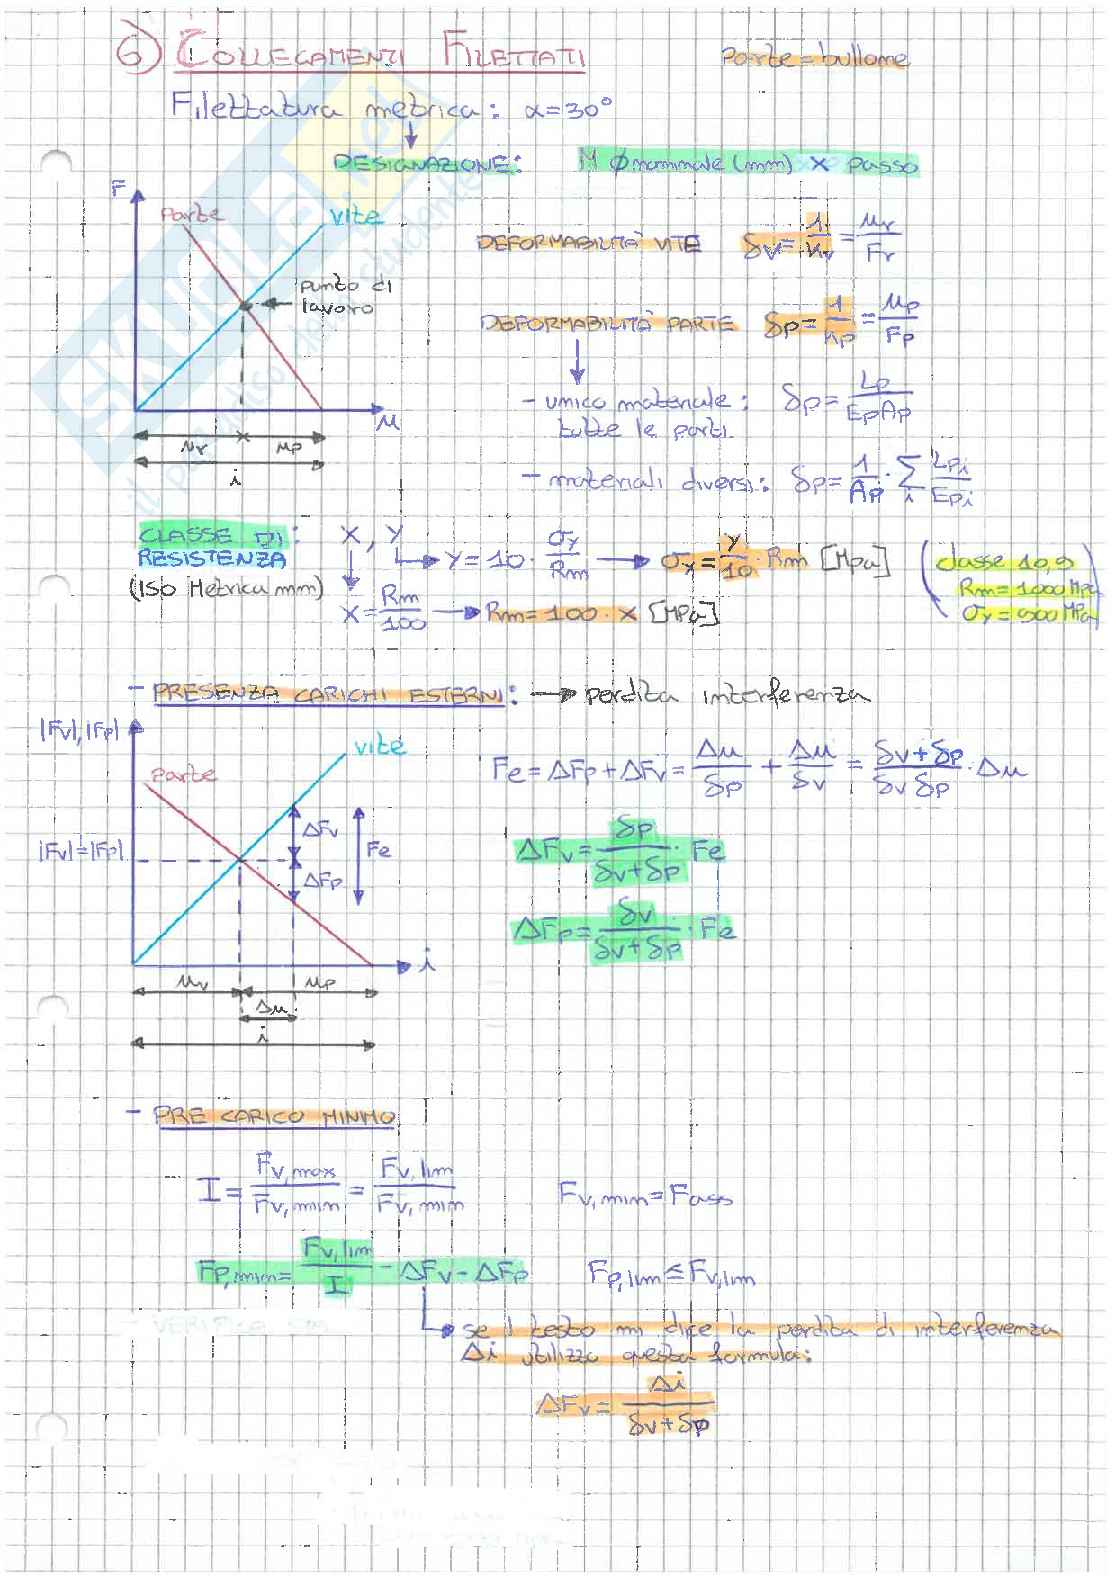 6) COLLEGAMENTI FILETTATI
Parte = bullone
Filettatura metrica: α=30°
DESIGNAZIONE: M Ø nominale (mm) x passo
F
parte
vite
punto di
lavoro
μ
μv
μp
i
DEFORMABILITÀ VITE δv = 1/kv = μv/Fv
DEFORMABILITÀ PARTE δp = 1/kp = μp/Fp
- unico materiale: δp = Lp/EpAp
tutte le parti
- materiali diversi: δp = 1/Ap · Σi Lpi/Epi
CLASSE DI: X, Y → Y = 10 · σy/Rm → σy = Y/10 · Rm [MPa] (classe 10,9
RESISTENZA
(ISO Metrica mm) X = Rm/100 → Rm = 100 · X [MPa] Rm = 1000 MPa
σy = 900 MPa)
- PRESENZA CARICHI ESTERNI: → perdita interferenza
|Fv|, |Fp|
vite
parte
ΔFv
|Fv| = |Fp|
Fe
ΔFp
i
μv
μp
Δμ
i
Fe = ΔFp + ΔFv = Δμ/δp + Δμ/δv = δv+δp/δv δp · Δμ
ΔFv = δp/δv+δp · Fe
ΔFp = δv/δv+δp · Fe
- PRE CARICO MINIMO
I = Fv,max/Fv,min = Fv,lim/Fv,min Fv,min = Fass
Fp,min = Fv,lim/I - ΔFv - ΔFp Fp,lim ≤ Fv,lim
se il testo mi dice la perdita di interferenza
Δi utilizzo questa formula:
ΔFv = Δi/δv+δp